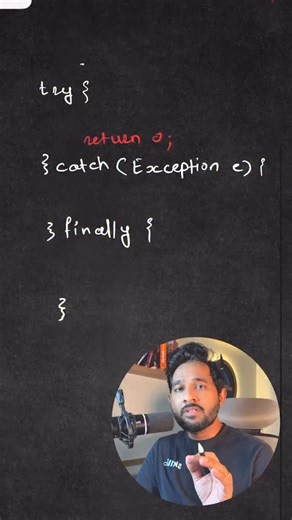 try {
return 0;
} catch (Exception e) {
} finally {
}